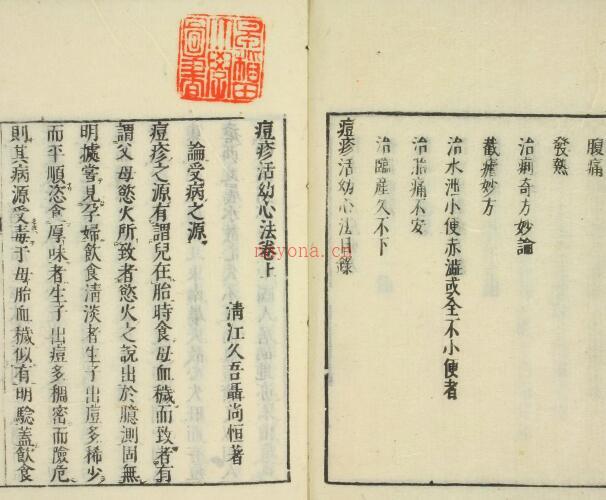 腹痛
發熱
治痢奇方妙論
截瘧妙方
治水瀉小便赤澁或全不小便者
治胎痛不安
治臨産久不下
痘疹活幼心法目錄
痘疹活幼心法卷上
清江久吾聶尚恒著
論受病之源
痘疹之源有謂兒在胎時食母血穢而致者有
謂父母慾火所致者慾火之說出於臆測固無
明據嘗見孕婦飲食清淡者生子出痘多稀少
而平順恣食厚味者生子出痘多稠密而險危
則其病源受毒于母胎血穢似有明驗蓋飲食